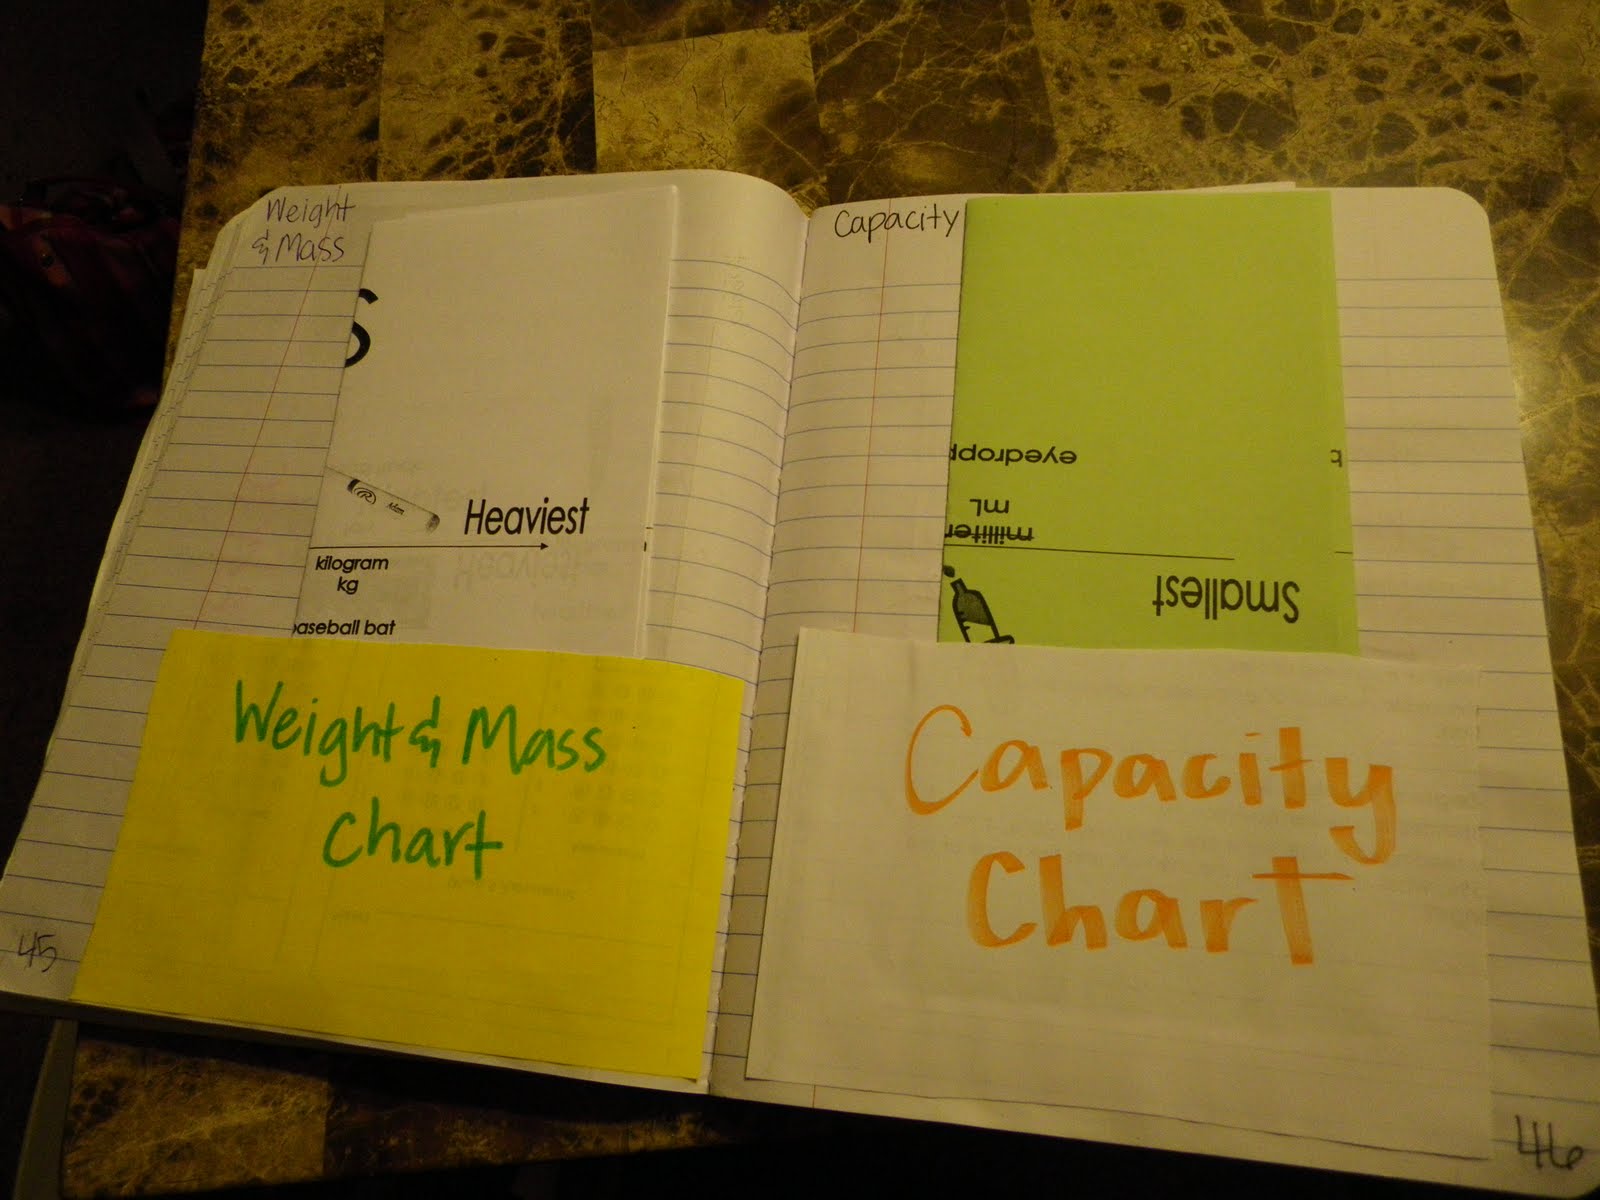 Weight
& Mass
S
Heaviest
kilogram
kg
baseball bat
Weight & Mass
Chart
45
Capacity
Smallest
milliliter
mL
eyedropp
b
Capacity
Chart
46